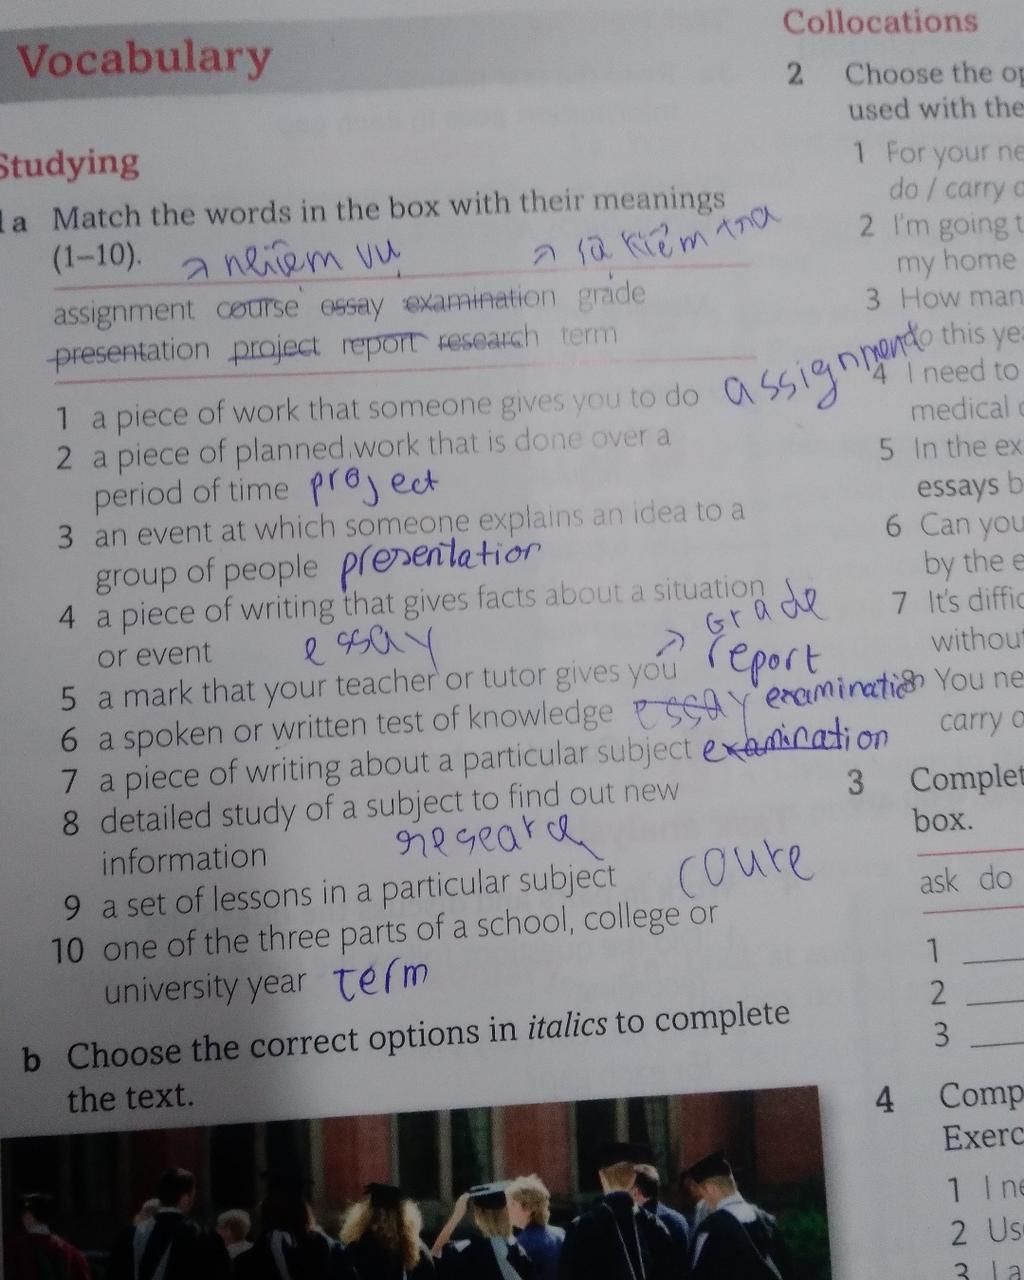 Vocabulary
Studying
1a Match the words in the box with their meanings
(1–10).
assignment course essay examination grade
presentation project report research term
1 a piece of work that someone gives you to do assignment
2 a piece of planned work that is done over a
period of time project
3 an event at which someone explains an idea to a
group of people presentation
4 a piece of writing that gives facts about a situation
or event essay
Grade
5 a mark that your teacher or tutor gives you report
6 a spoken or written test of knowledge essay examination
7 a piece of writing about a particular subject examination
8 detailed study of a subject to find out new
information
9 a set of lessons in a particular subject coure
10 one of the three parts of a school, college or
university year term
b Choose the correct options in italics to complete
the text.
Collocations
2 Choose the op
used with the
1 For your ne
do / carry o
2 I'm going t
my home
3 How man
do this yea
4 I need to
medical
5 In the ex
essays b
6 Can you
by the e
7 It's diffic
without
8 You ne
carry o
3 Complet
box.
ask do
1
2
3
4 Comp
Exerc
1 I ne
2 Us
3 I a